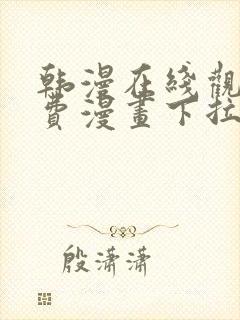 韩漫在线觀
費漫畫下拉
殷潇潇